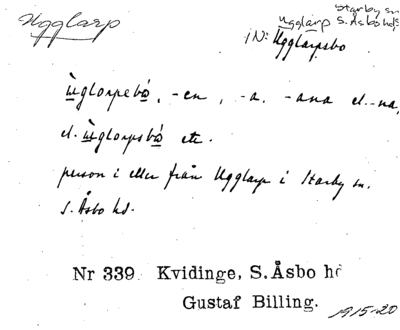 Ugglarp
Starby sn
Ugglarp S. Åsbo hd
iN: Ugglarpsbo
ùglorpebå, -en, -a, -ana el. -na,
el. ùglorpsbå etc.
person i eller från Ugglarp i Starby sn.
S. Åsbo hd.
Nr 339 Kvidinge, S. Åsbo hd
Gustaf Billing.
1915-20